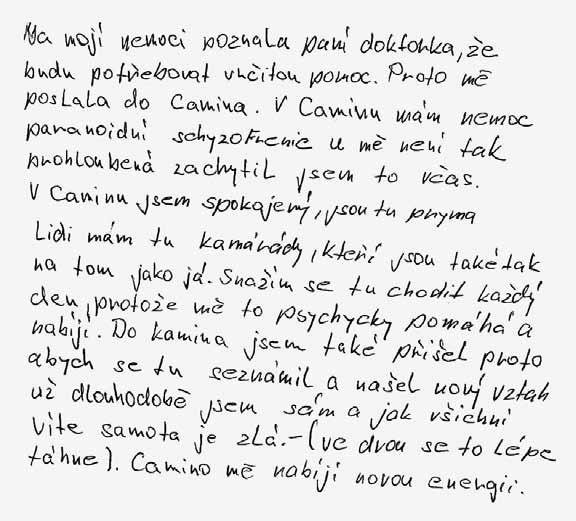 Na mojí nemoci poznala paní doktorka, že
budu potřebovat určitou pomoc. Proto mě
poslala do Camina. V Caminu mám nemoc
paranoidní schyzofrenie u mě není tak
prohloubená zachytil jsem to včas.
V Caminu jsem spokajený, jsou tu pryma
Lidi mám tu kamárády, kteří jsou také tak
na tom jako já. Snažím se tu chodit každý
den, protože mě to psychycky pomáhá a
nabíjí. Do kamina jsem také přišel proto
abych se tu seznámil a našel nový vztah
už dlouhodobě jsem sám a jak všichni
víte samota je zlá.-(ve dvou se to lépe
táhne). Camino mě nabíjí novou energii.